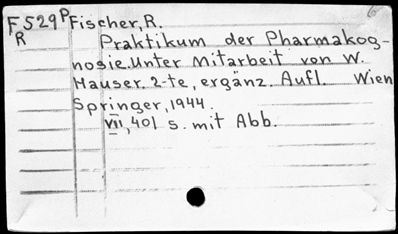 F529P Fischer, R.
R Praktikum der Pharmakog-
nosie. Unter Mitarbeit von W.
Hauser. 2-te, ergänz. Aufl. Wien
Springer, 1944.
VII, 401 S. mit Abb.